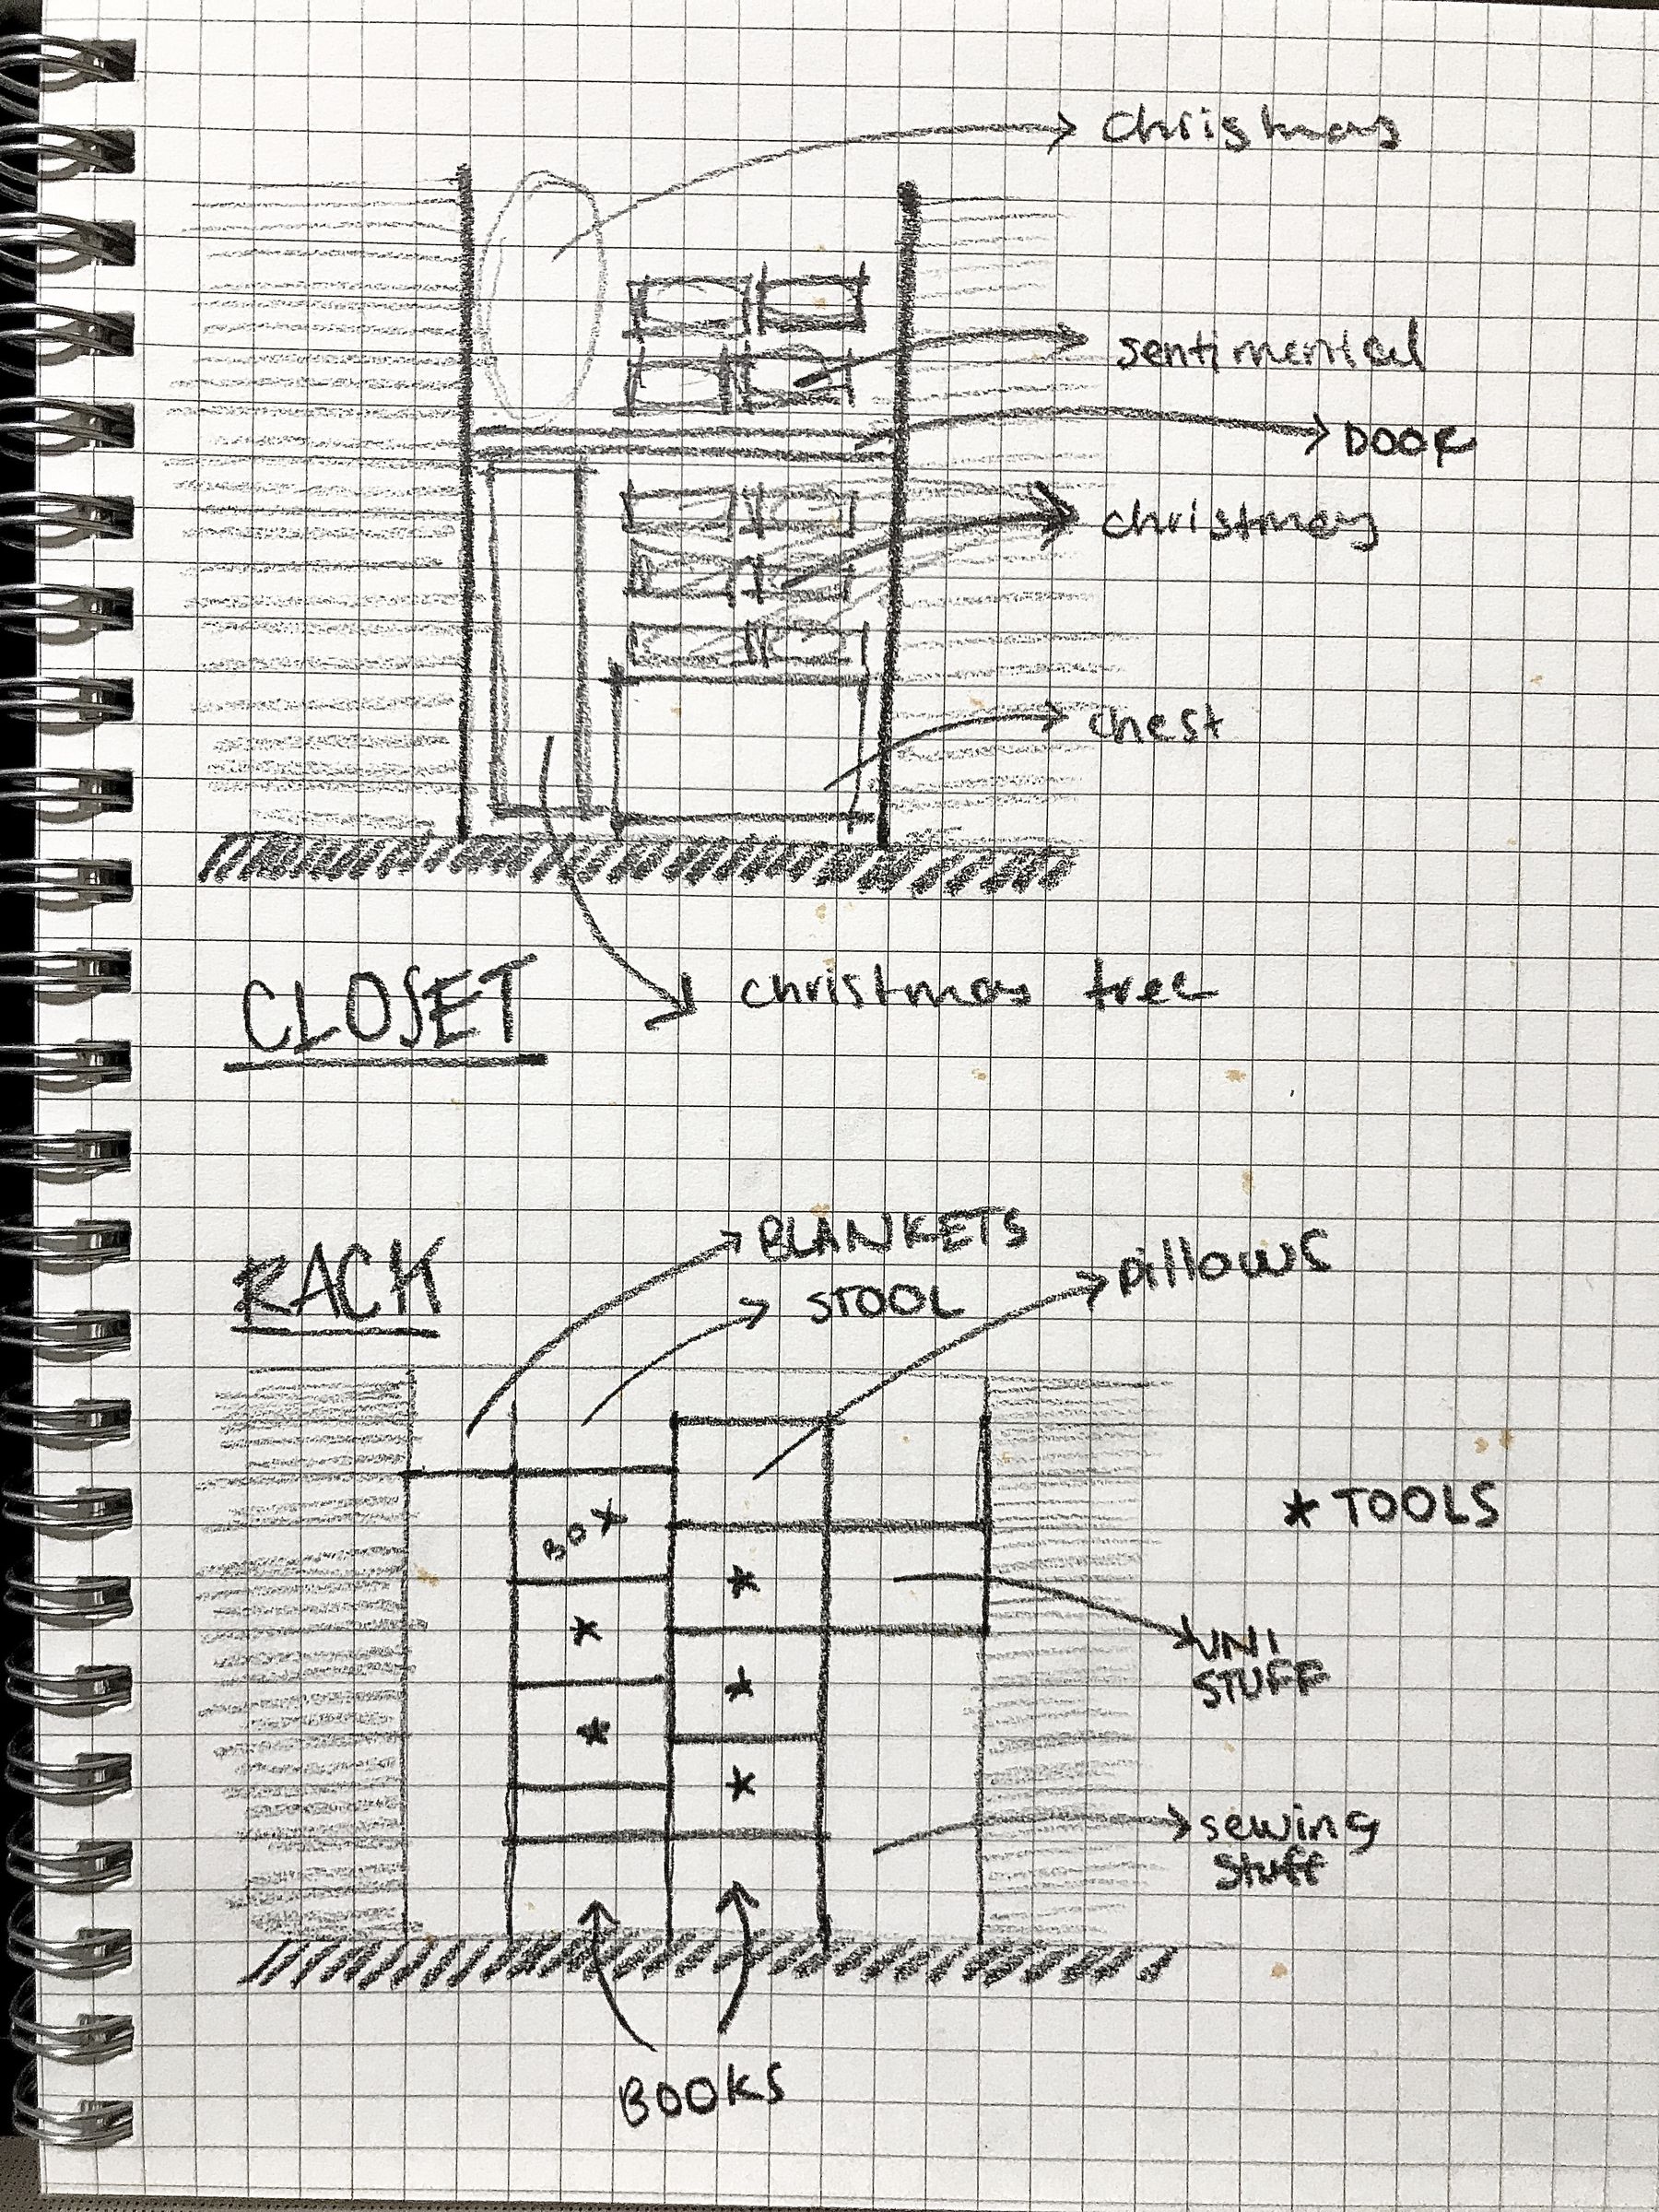 christmas
sentimental
DOOR
christmas
chest
christmas tree
CLOSET
RACK
BLANKETS
STOOL
pillows
BOX
* TOOLS
*
*
*
*
*
UNI
STUFF
sewing
stuff
BOOKS